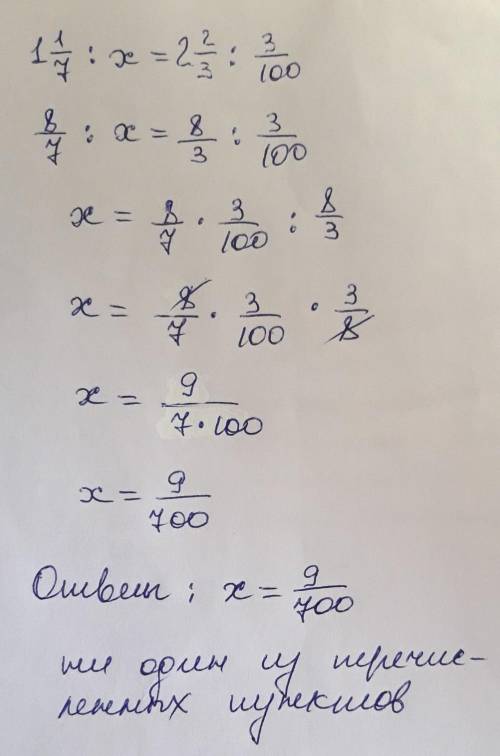 1 1/7 : x = 2 2/3 : 3/100
8/7 : x = 8/3 : 3/100
x = 8/7 · 3/100 : 8/3
x = 8/7 · 3/100 · 3/8
x = 9/7·100
x = 9/700
Ответ: x = 9/700
ни один из перечис-
ленных пунктов